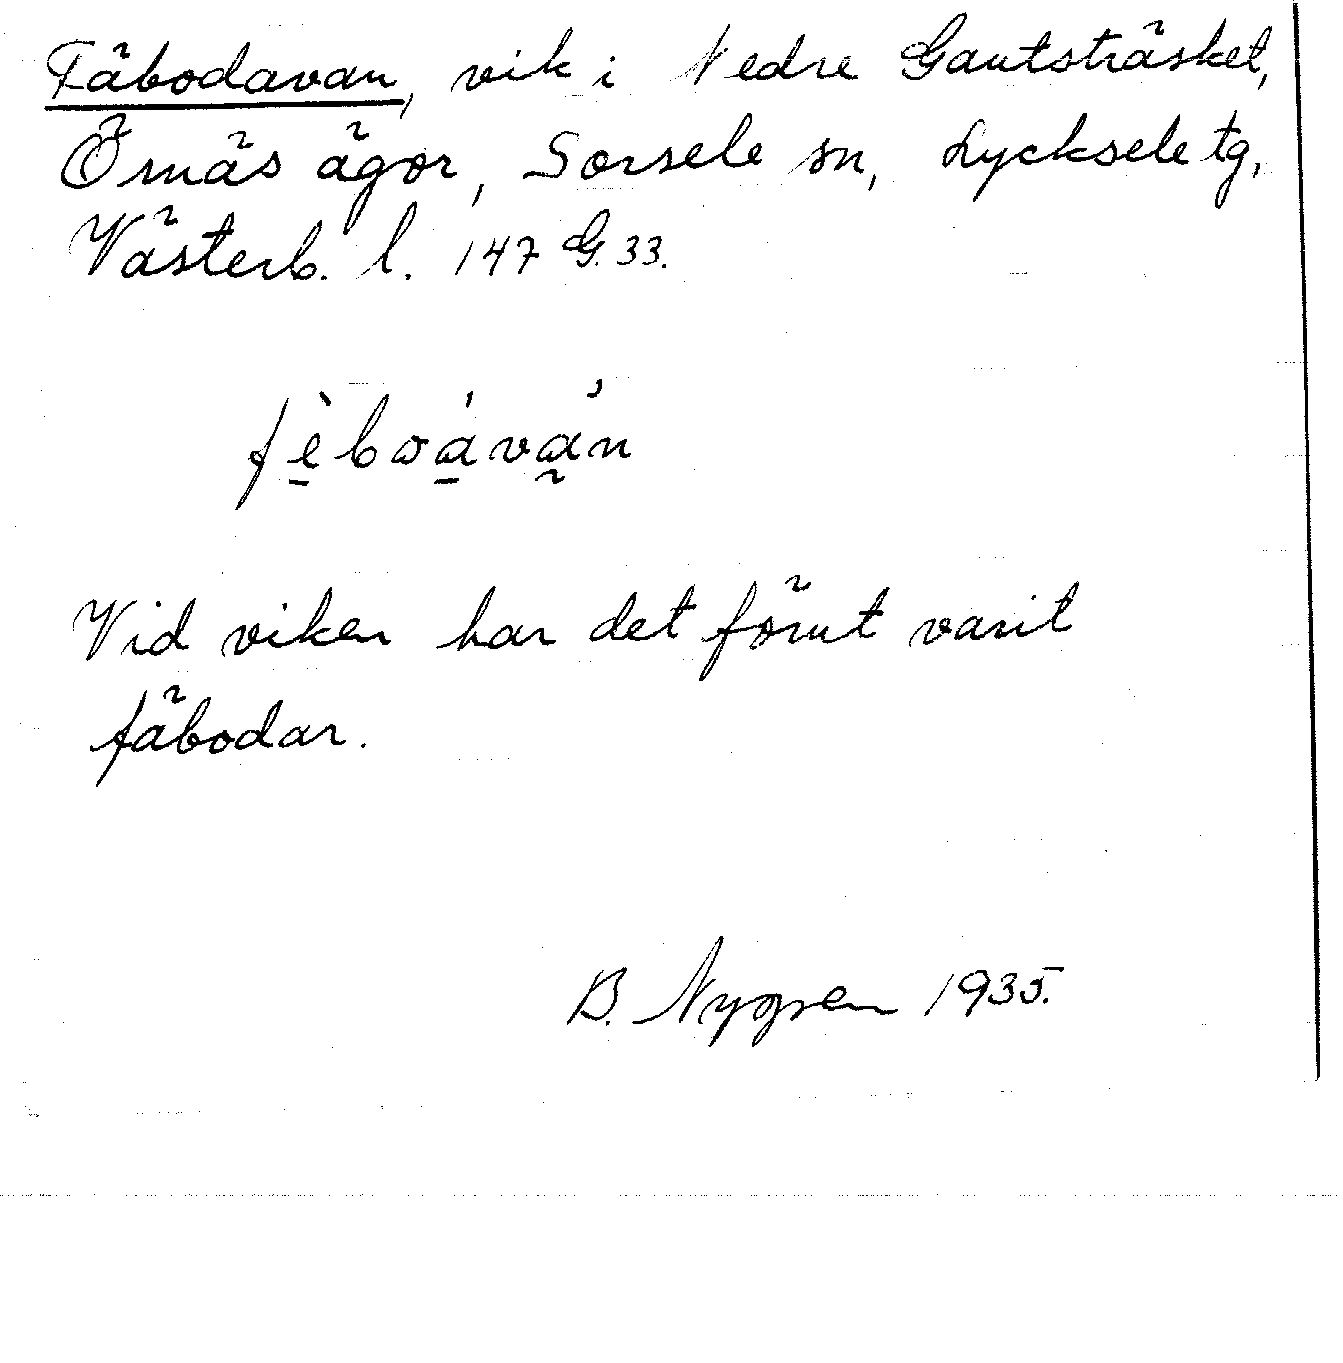 Fäbodavan, vik i Nedre Gautsträsket,
Örnäs ägor, Sorsele sn, Lycksele tg,
Västerb. l. 147 G. 33.
fèboáván
Vid viken har det förut varit
fäbodar.
B. Nygren 1935.